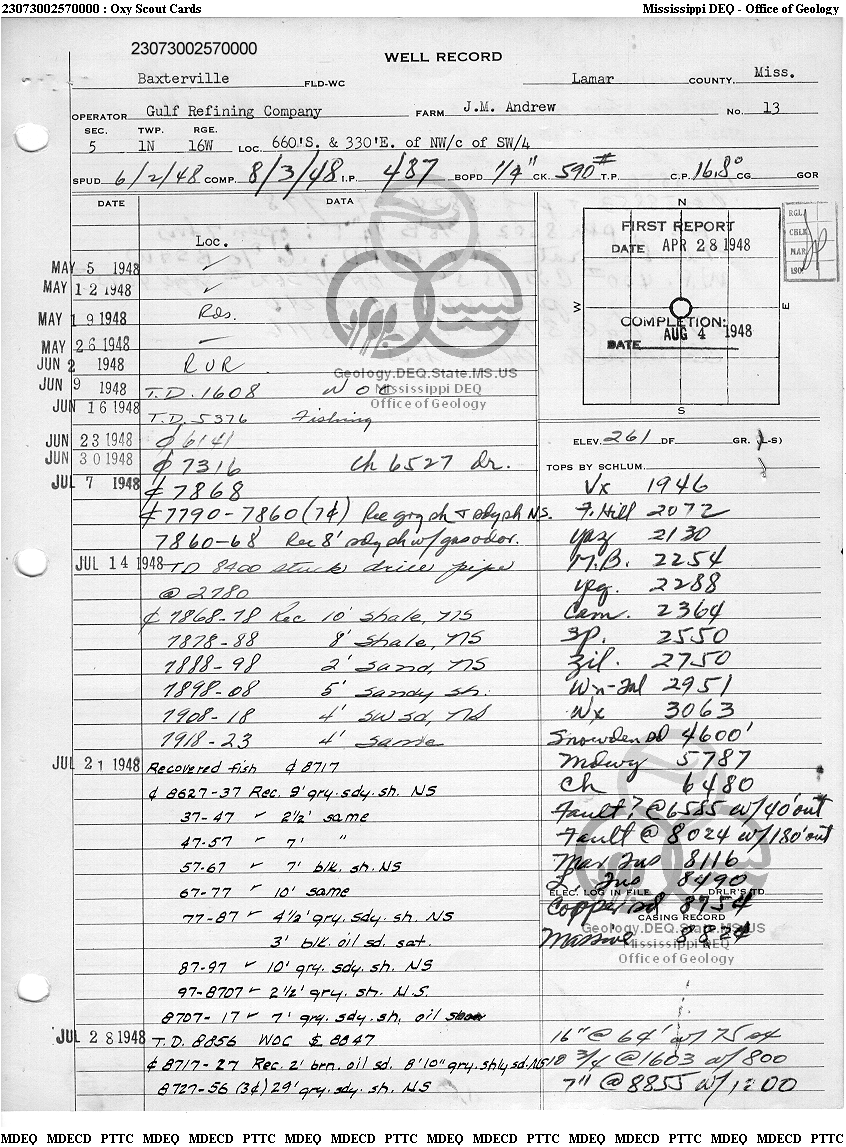 23073002570000 : Oxy Scout Cards
Mississippi DEQ - Office of Geology
23073002570000
WELL RECORD
Baxterville FLD-WC Lamar COUNTY, Miss.
OPERATOR Gulf Refining Company FARM J.M. Andrew NO. 13
SEC. TWP. RGE.
5 1N 16W LOC. 660'S. & 330'E. of NW/c of SW/4
SPUD 6/2/48 COMP. 8/3/48 I.P. 487 BOPD 1/4" CK. 590# T.P. C.P. 16.8° CG GOR
DATE DATA
Loc.
MAY 5 1948 ✓
MAY 12 1948 ✓
MAY 19 1948 Rds.
MAY 26 1948 —
JUN 2 1948 RUR
JUN 9 1948 T.D. 1608 WOC
JUN 16 1948 T.D. 5376 Fishing
JUN 23 1948 ¢ 6141
JUN 30 1948 ¢ 7316 Ch 6527 dr.
JUL 7 1948 ¢ 7868
¢ 7790-7860 (7¢) Rec gry sh & sdy sh NS.
7860-68 Rec 8' sdy sh w/ gas odor.
JUL 14 1948 TD 8400 stuck drill pipe
@ 2780
¢ 7868-78 Rec 10' Shale, NS
7878-88 8' Shale, NS
7888-98 2' Sand, NS
7898-08 5' Sandy sh.
7908-18 4' SW sd, NS
7918-23 4' Same
JUL 21 1948 Recovered fish ¢ 8717
¢ 8627-37 Rec. 9' gry. sdy. sh. NS
37-47 " 2½' same
47-57 " 7' "
57-67 " 7' blk. sh. NS
67-77 " 10' same
77-87 " 4½' gry. sdy. sh. NS
3' blk. oil sd. sat.
87-97 " 10' gry. sdy. sh. NS
97-8707 " 2½' gry. sh. N.S.
8707-17 " 7' gry. sdy. sh. oil
JUL 28 1948 T.D. 8856 WOC $ 8847
¢ 8717-27 Rec. 2' brn. oil sd. 8'10" gry. shly sd. NS
8727-56 (3¢) 29' gry. sdy. sh. NS
N
FIRST REPORT
DATE APR 28 1948
W E
COMPLETION:
DATE AUG 4 1948
S
RGL
CHLK
MAR
ISO
ELEV. 261 DF GR. (L-S)
TOPS BY SCHLUM.
Vx 1946
F. Hill 2072
Yaz 2130
M.B. 2254
Yeg. 2288
Cam. 2364
Sp. 2550
Zil. 2750
Wn-Tal 2951
Wx 3063
Snowden sd 4600'
Mdwy 5787
Ch 6480
Fault? @ 6585 w/ 40' out
Fault @ 8024 w/ 180' out
Mar. Tus 8116
L. Tus 8490
ELEC. LOG IN FILE DRLR'S TD
Copper sd 8754
CASING RECORD
Massive 8824
16" @ 64' w/ 75 sx
10 3/4 @ 1603 w/ 800
7" @ 8855 w/ 1200
Geology.DEQ.State.MS.US
Mississippi DEQ
Office of Geology
Geology.DEQ.State.MS.US
Mississippi DEQ
Office of Geology
MDEQ MDECD PTTC MDEQ MDECD PTTC MDEQ MDECD PTTC MDEQ MDECD PTTC MDEQ MDECD PTTC MDEQ MDECD PTTC